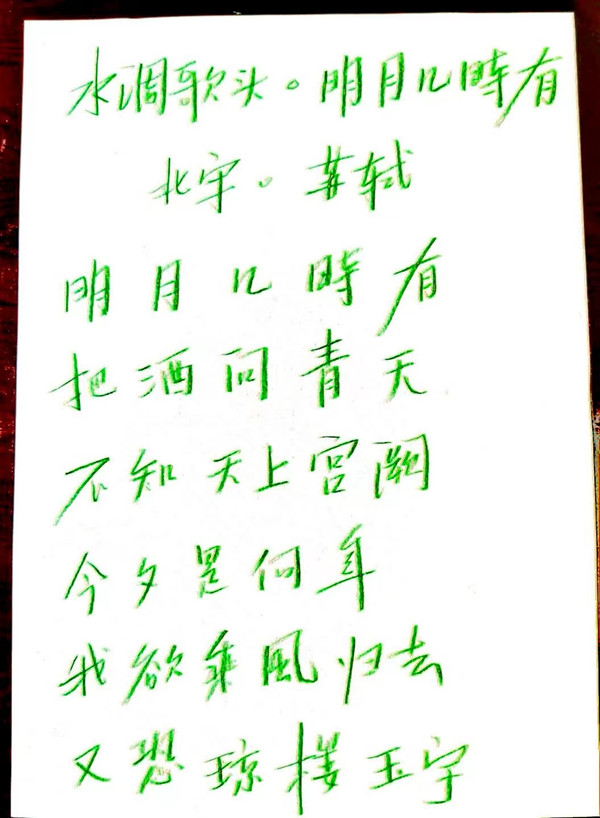 水调歌头。明月几時有
北宋。苏轼
明月几時有
把酒问青天
不知天上宫阙
今夕是何年
我欲乘風归去
又恐琼楼玉宇